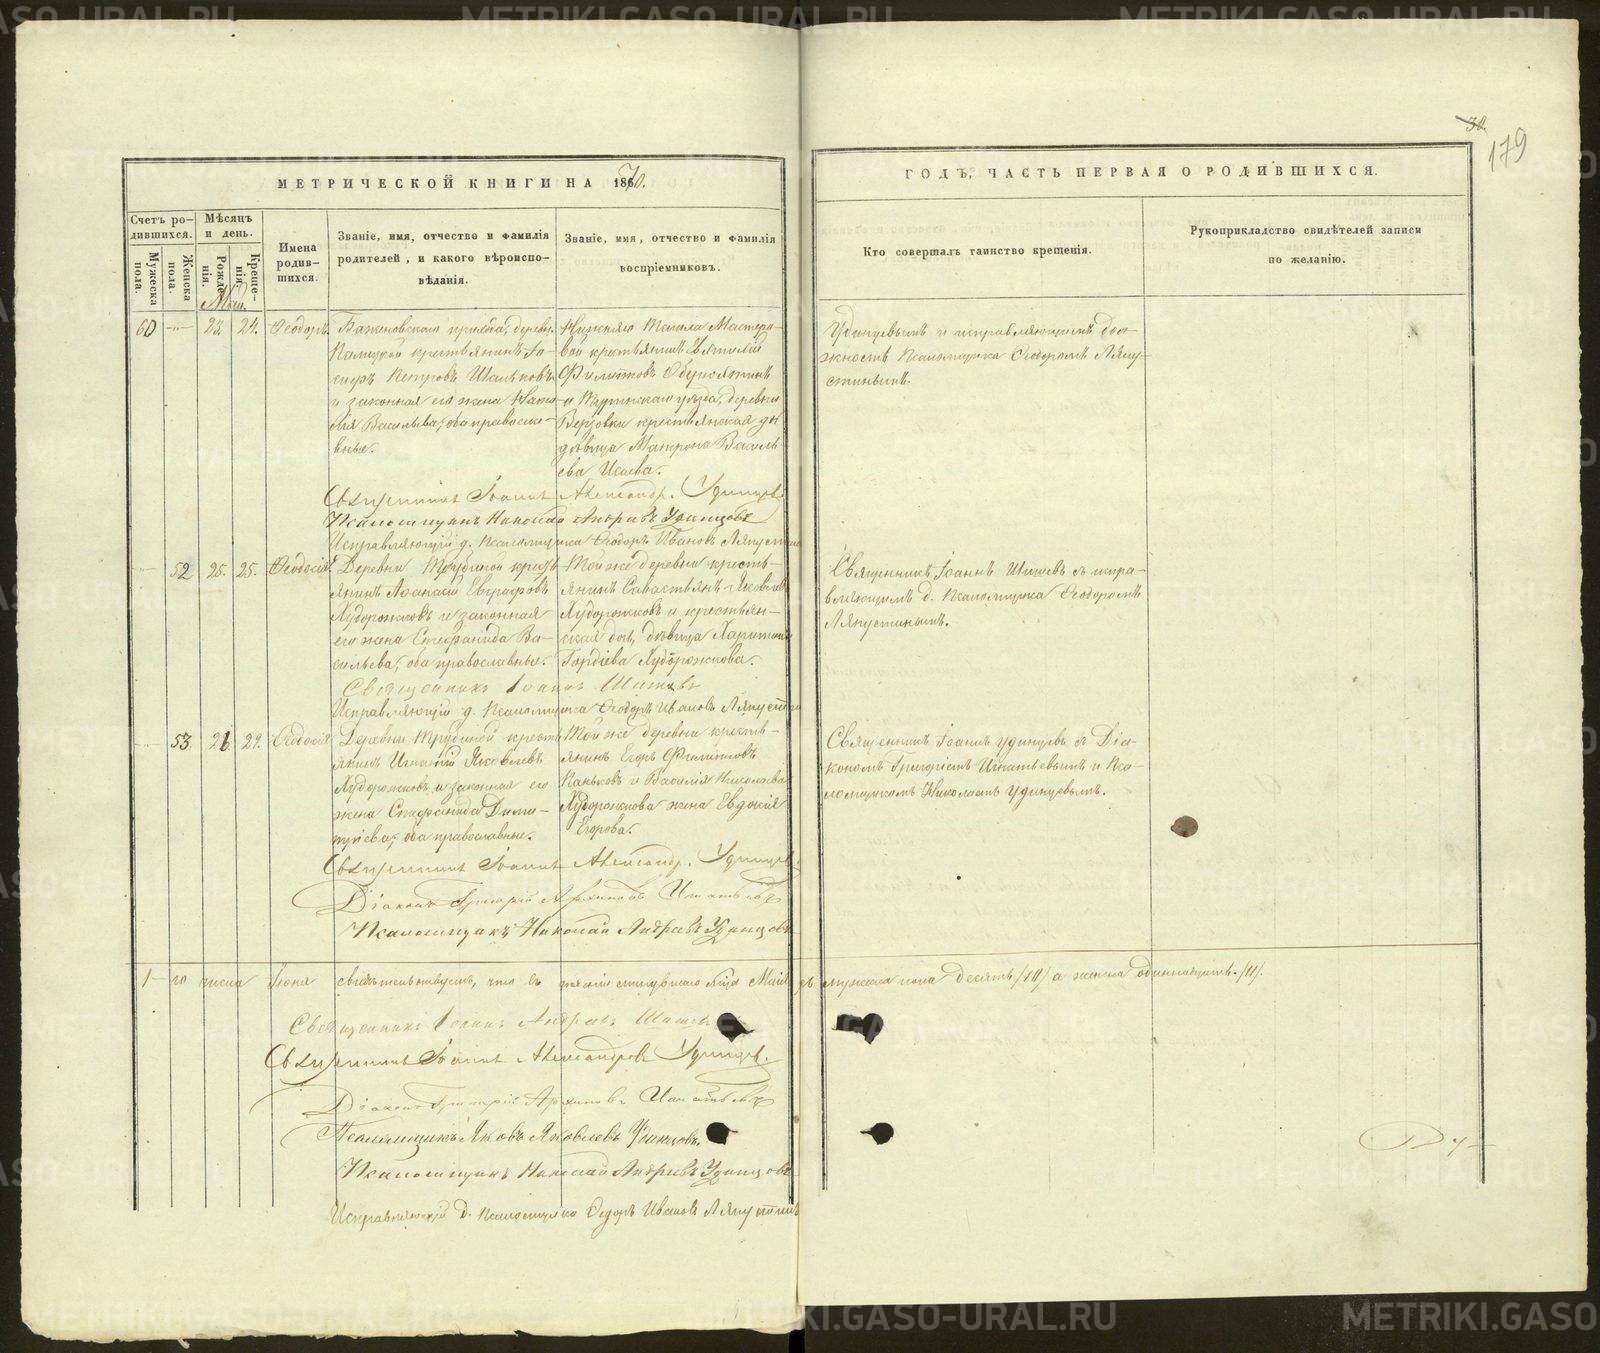 30.
179
МЕТРИЧЕСКОЙ КНИГИ НА 1870.
ГОДЪ, ЧАСТЬ ПЕРВАЯ О РОДИВШИХСЯ.
Счетъ ро-
дившихся.
Мужеска пола.
Женска пола.
Мѣсяцъ
и день.
Рожде-
нія.
Креще-
нія.
Имена
родив-
шихся.
Званіе, имя, отчество и фамилія
родителей, и какого вѣроиспо-
вѣданія.
Званіе, имя, отчество и фамилія
воспріемниковъ.
Кто совершалъ таинство крещенія.
Рукоприкладство свидѣтелей записи
по желанію.
Май.
60 23. 24. Ѳеодоръ.
Баженовскаго прихода, деревн.
крестьянинъ
Петровъ Шальковъ
и законная его жена
Васильева, оба православ-
ные.
Нижняго Тагила Мастеро-
вой крестьянинъ Евтихій
Филиповъ
и Туринскаго уѣзда, деревни
крестьянская
дѣвица Матрона Василь-
ева Исаева.
Удинцевымъ и исправляющимъ дол-
жность Псаломщика Ѳеодоромъ Ляпу-
стинымъ.
Священникъ Іоаннъ Александр. Удинцевъ
Псаломщикъ Николай Андреевъ Удинцовъ
Исправляющій д. Псаломщика Ѳеодоръ Ивановъ Ляпустинъ
52 25. 25. Ѳеодосія
Деревни Трубиной кресть-
янинъ Аѳанасій Евграфовъ
Худорожковъ и законная
его жена Стефанида Ва-
сильева, оба православные.
Той же деревни кресть-
янинъ Савастьянъ Яковлевъ
Худорожковъ и крестьян-
ская дочь, дѣвица Харитонія
Гордіева Худорожкова.
Священникъ Іоаннъ Шишевъ съ испра-
вляющимъ д. Псаломщика Ѳеодоромъ
Ляпустинымъ.
Священникъ Іоаннъ Шишевъ
Исправляющій д. Псаломщика Ѳеодоръ Ивановъ Ляпустинъ
53. 28. 29. Ѳеодосія
Деревни Трубиной кресть-
янинъ Игнатій Яковлевъ
Худорожковъ и законная его
жена Стефанида Дими-
тріева, оба православные.
Той же деревни кресть-
янинъ Егоръ Филиповъ
Паньковъ и Василія Николаева
Худорожкова жена Евдокія
Егорова.
Священникъ Іоаннъ Удинцевъ съ Діа-
кономъ Григоріемъ Игнатьевымъ и Пса-
ломщикомъ Николаемъ Удинцевымъ.
Священникъ Іоаннъ Александр. Удинцевъ
Діаконъ Григорій Архиповъ Игнатьевъ
Псаломщикъ Николай Андреевъ Удинцовъ
1-го числа Іюня свидѣтельствуемъ, что въ теченіи минувшаго м-ца Мая
мужеска пола десять /10/ а женска одиннадцать. /11/.
Священникъ Іоаннъ Андреевъ Шишевъ
Священникъ Іоаннъ Александровъ Удинцевъ.
Діаконъ Григорій Архиповъ Игнатьевъ
Псаломщикъ Яковъ Яковлевъ Удинцовъ.
Псаломщикъ Николай Андреевъ Удинцовъ
Исправляющій д. Псаломщика Ѳедоръ Ивановъ Ляпустинъ
METRIKI.GASO-URAL.RU